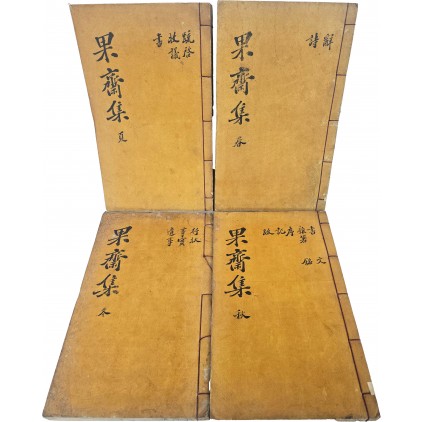 辭
詩
果齋集 春
疏啓
收議
書
果齋集 夏
書
雜著
序
記
跋
文
果齋集 秋
行狀
事實
遺事
果齋集 冬